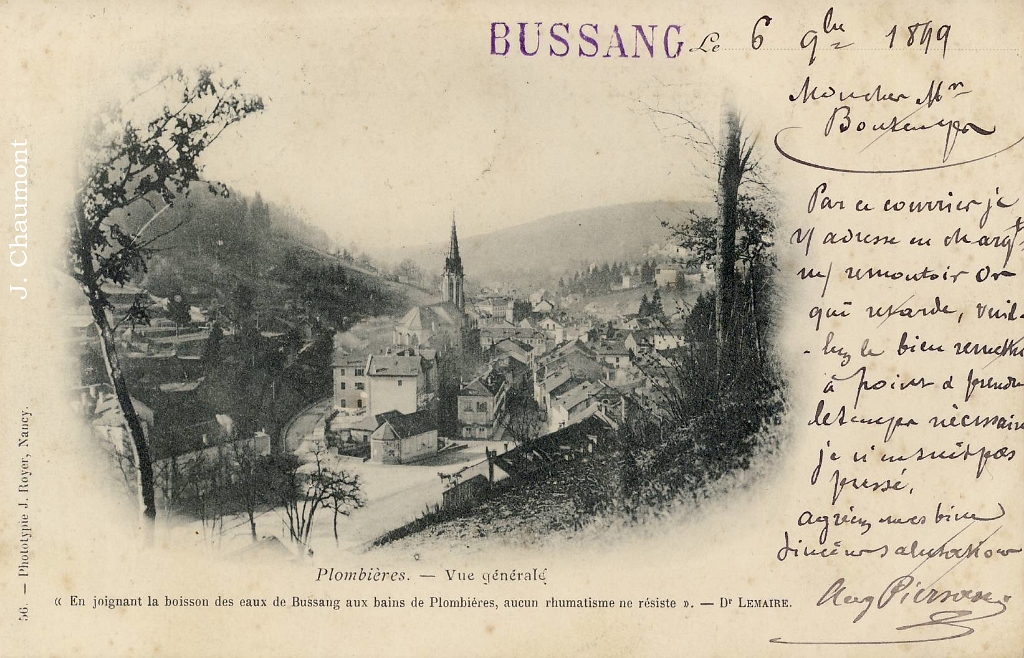 BUSSANG
Le 6 9bre 1899
Mon cher Mr
Par ce courrier je
v/ adresse en chargt
m/ remontoir Or
qui retarde, veuil-
-lez le bien remettre
à point & prendre
le temps nécessaire
je n'en suis pas
pressé.
agréez mes bien
sincères salutations
Aug Pierson
J. Chaumont
56. — Phototypie J. Royer, Nancy.
Plombières. — Vue générale
« En joignant la boisson des eaux de Bussang aux bains de Plombières, aucun rhumatisme ne résiste ». — Dr LEMAIRE.